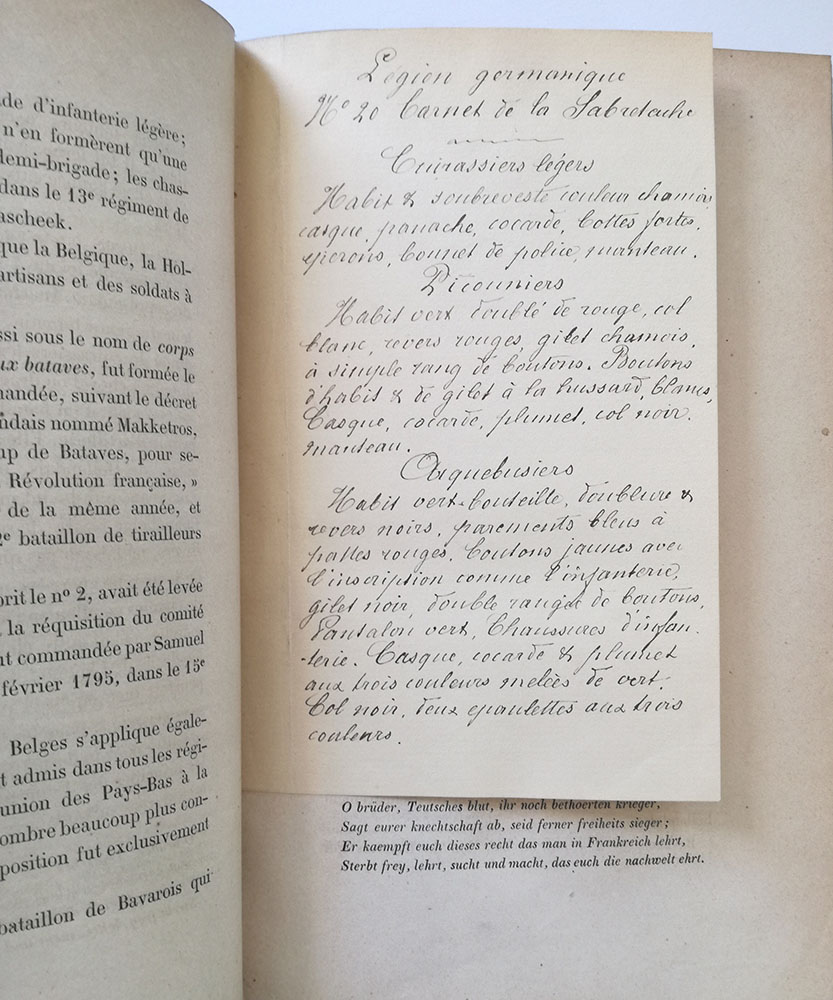 de d'infanterie légère;
n'en formèrent qu'une
demi-brigade; les chas-
dans le 13e régiment de
ascheek.
que la Belgique, la Hol-
artisans et des soldats à
ssi sous le nom de corps
ux bataves, fut formée le
mandée, suivant le décret
ndais nommé Makketros,
up de Bataves, pour se-
Révolution française, »
de la même année, et
2e bataillon de tirailleurs
prit le no 2, avait été levée
la réquisition du comité
nt commandée par Samuel
février 1795, dans le 15e
Belges s'applique égale-
t admis dans tous les régi-
union des Pays-Bas à la
ombre beaucoup plus con-
position fut exclusivement
bataillon de Bavarois qui
Légion germanique
No 20 Carnet de la Sabretache
Cuirassiers légers
Habit & soubreveste couleur chamois
casque, panache, cocarde, bottes fortes,
éperons, bonnet de police, manteau.
Piconniers
Habit vert doublé de rouge, col
blanc, revers rouges, gilet chamois,
à simple rang de boutons. Boutons
d'habit & de gilet à la hussard, blancs,
Casque, cocarde, plumet, col noir.
manteau.
Arquebusiers
Habit vert-bouteille, doublure &
revers noirs, parements bleus à
pattes rouges. boutons jaunes avec
l'inscription comme l'infanterie,
gilet noir, double rangée de boutons,
Pantalon vert, Chaussures d'infan-
-terie. Casque, cocarde & plumet
aux trois couleurs melées de vert.
Col noir, deux epaulettes aux trois
couleurs.
O brüder, Teutsches blut, ihr noch bethoerten krieger,
Sagt eurer knechtschaft ab, seid ferner freiheits sieger;
Er kaempft euch dieses recht das man in Frankreich lehrt,
Sterbt frey, lehrt, sucht und macht, das euch die nachwelt ehrt.